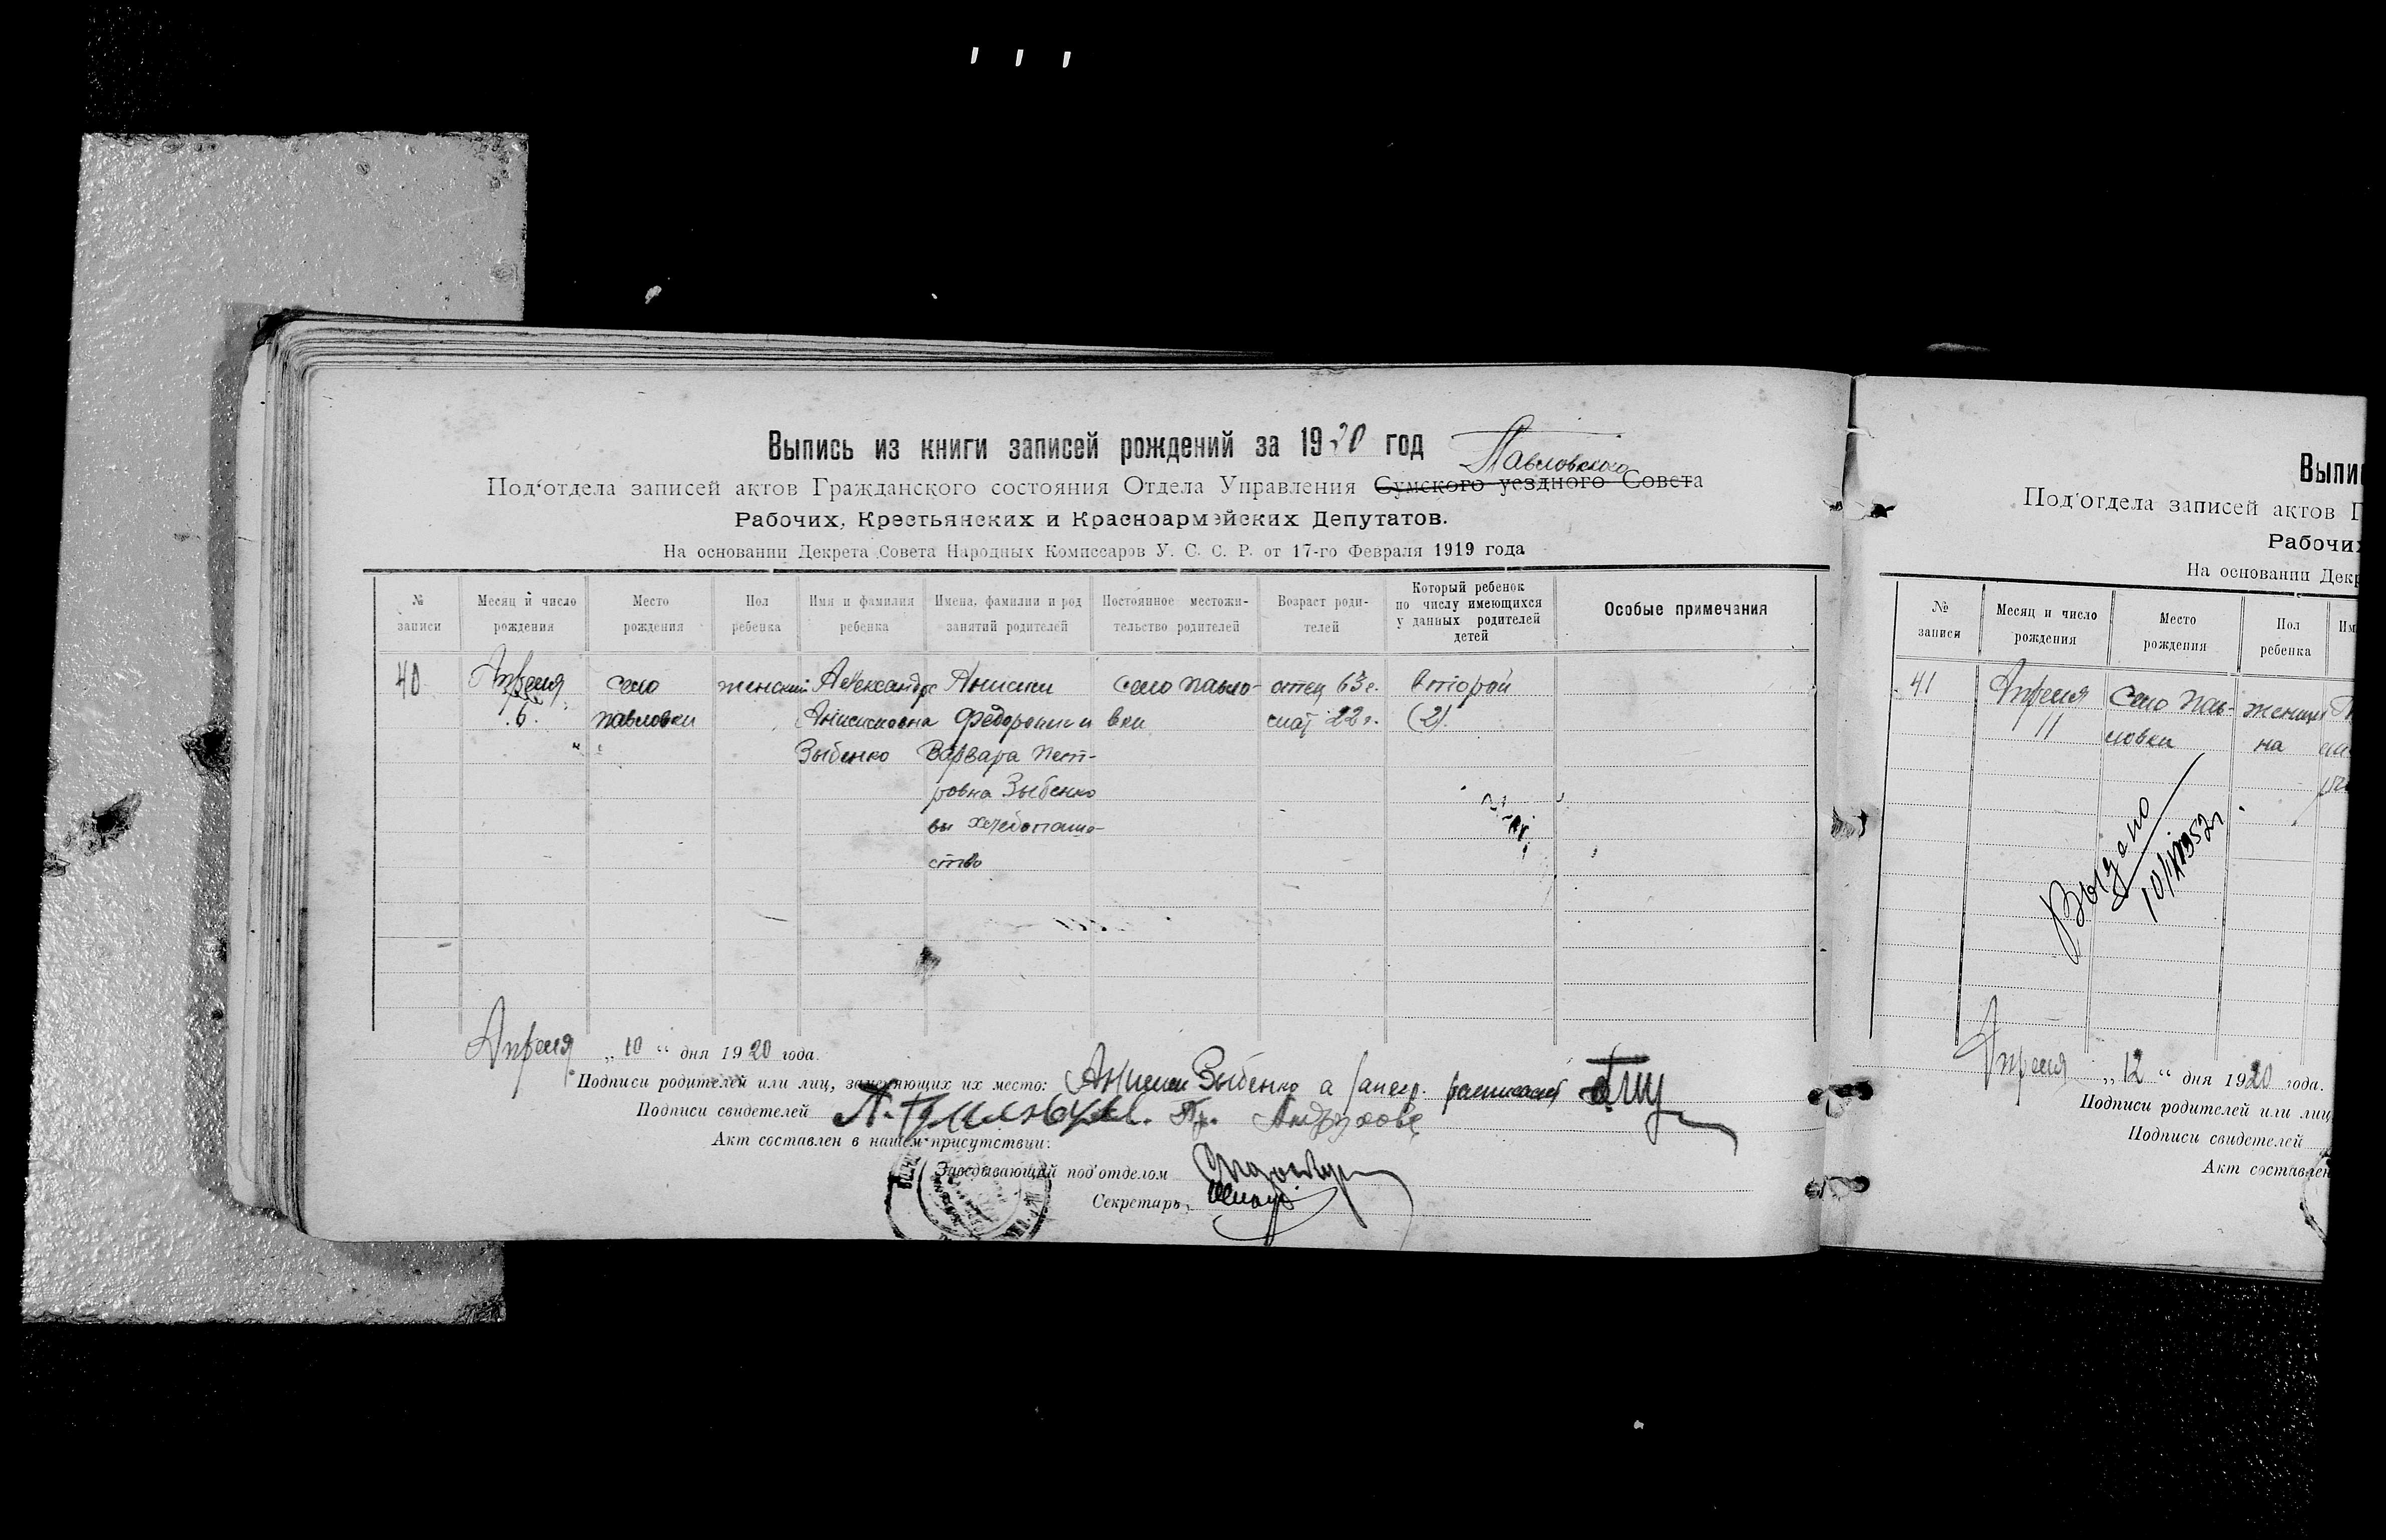 Выпись из книги записей рождений за 1920 год
Павловского
Под‘отдела записей актов Гражданского состояния Отдела Управления Сумского уездного Совета
Рабочих, Крестьянских и Красноармейских Депутатов.
На основании Декрета Совета Народных Комиссаров У. С. С. Р. от 17-го Февраля 1919 года
№ записи
Месяц и число рождения
Место рождения
Пол ребенка
Имя и фамилия ребенка
Имена, фамилии и род занятий родителей
Постоянное местожительство родителей
Возраст родителей
Который ребенок по числу имеющихся у данных родителей детей
Особые примечания
40 Апреля село женский Александра Анисим Село Павло- отец 63 г. второй
6. Павловки Анисимовна Федорович вки мат 22 г. (2).
Зыбенко Варвара Пет-
ровна Зыбенко
вы хлебопаше-
ство
Апреля „10“ дня 1920 года.
Подписи родителей или лиц, заменяющих их место: Анисим Зыбенко а
Подписи свидетелей
Акт составлен в нашем присутствии:
Заведывающий под‘отделом
Секретарь,
Выпи
Под‘отдела записей актов Г
Рабочих
На основании Декр
№ записи
Месяц и число рождения
Место рождения
Пол ребенка
Им
41 Апреля Село Пав- женщи
11 ловки на
Выдано
Апреля „12“ дня 1920 года.
Подписи родителей или лиц
Подписи свидетелей
Акт составлен